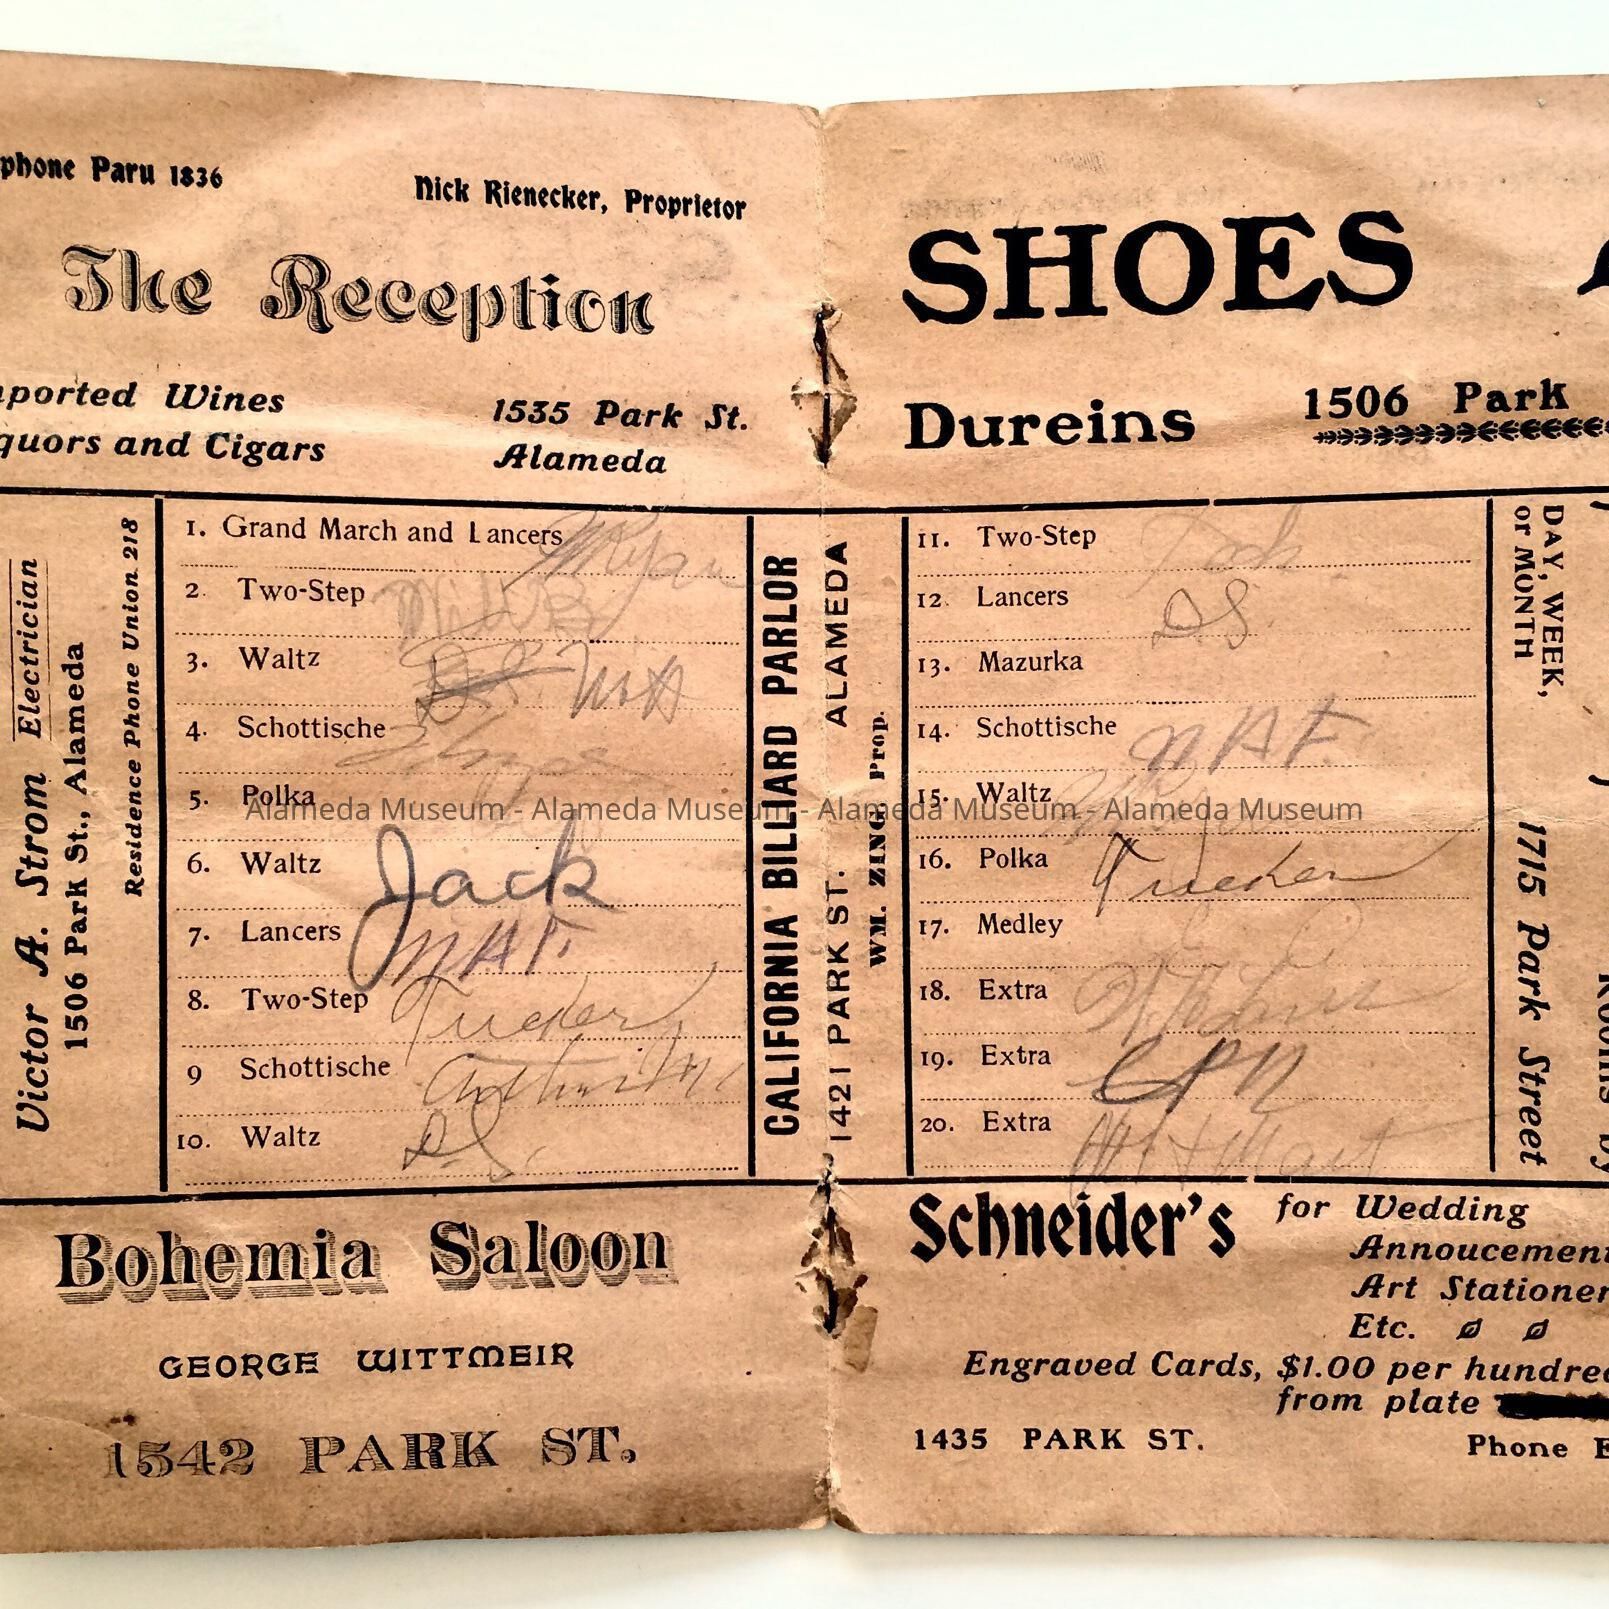 phone Paru 1836
Nick Rienecker, Proprietor
The Reception
ported Wines
quors and Cigars
1535 Park St.
Alameda
SHOES
Dureins
1506 Park
Victor A. Strom Electrician
1506 Park St., Alameda
Residence Phone Union 218
1. Grand March and Lancers Ryan
2. Two-Step
3. Waltz
4. Schottische
5. Polka
6. Waltz Jack
7. Lancers N.A.F.
8. Two-Step Tucker
9 Schottische
10. Waltz D.S.
CALIFORNIA BILLIARD PARLOR
1421 PARK ST. ALAMEDA
WM. ZING, Prop.
11. Two-Step
12. Lancers D.S
13. Mazurka
14. Schottische N.A.F.
15. Waltz
16. Polka Tucker
17. Medley
18. Extra
19. Extra
20. Extra
DAY, WEEK,
or MONTH
1715 Park Street
Rooms by
Alameda Museum - Alameda Museum - Alameda Museum - Alameda Museum
Bohemia Saloon
GEORGE WITTMEIR
1542 PARK ST.
Schneider's
for Wedding
Annoucement
Art Stationer
Etc.
Engraved Cards, $1.00 per hundred
from plate
1435 PARK ST.
Phone E